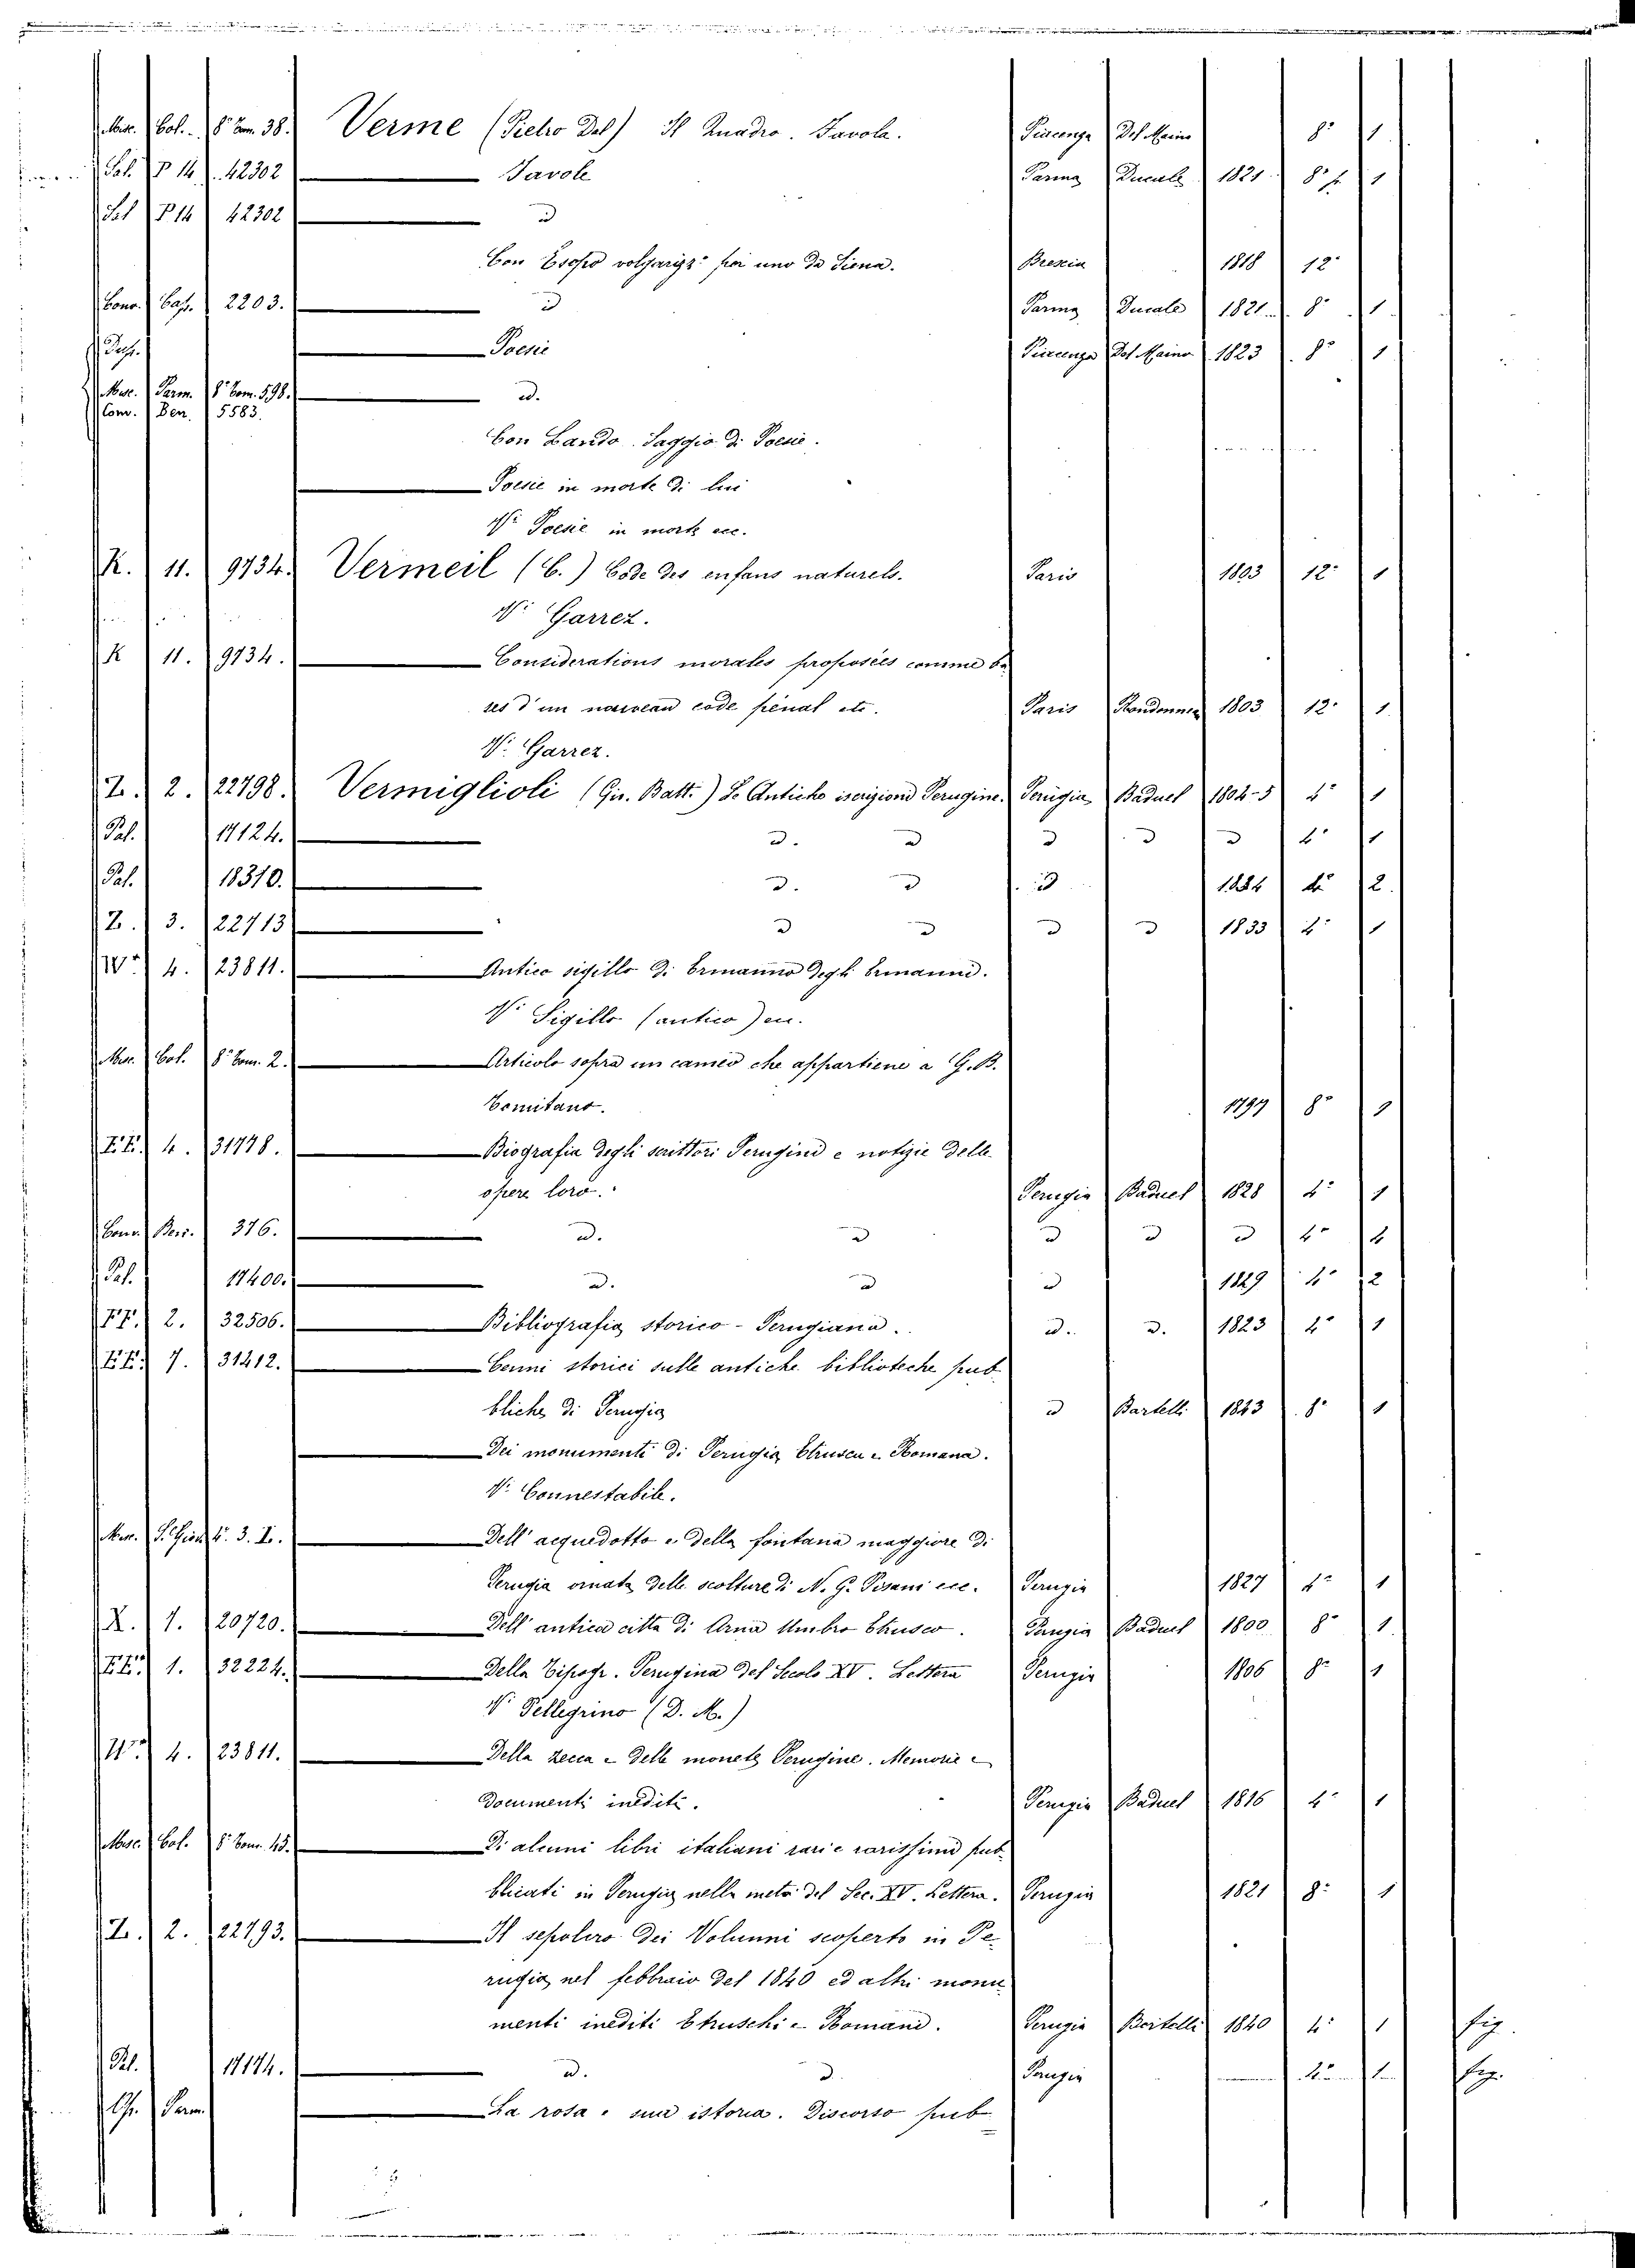 Misc. Col. 8° Tom. 38. Verme (Pietro Dal) Il Quadro. Favola. Piacenza Del Maino 8° 1
Pal. P 14 42302 Favole Parma Ducale 1821 8° 1
Pal P 14 42302 id
Con Esopo volgarizz° per uno da Siena. Brescia 1818 12°
Conv. Cap. 2203. id Parma Ducale 1821 8° 1
Poesie Piacenza Del Maino 1823 8° 1
Misc. Parm. 8° Tom. 598. id.
Conv. Ben. 5583.
Con Lando. Saggio di Poesie.
Poesie in morte di lui
V. Poesie in morte ecc.
K. 11. 9734. Vermeil (C.) Code des enfans naturels. Paris 1803 12° 1
V. Garrez.
K 11. 9734. Considerations morales proposées comme ba
ses d'un nouveau code pénal etc. Paris Rondonneau 1803 12° 1
V. Garrez.
Z. 2. 22798. Vermiglioli (Gio. Batt.) Le Antiche iscrizioni Perugine. Perugia Baduel 1804-5 4° 1
Pal. 17124. id. id id id id 4° 1
Pal. 18310. id. id id 1834 4° 2.
Z. 3. 22713 id id id id 1833 4° 1
W. 4. 23811. Antico sigillo di Ermanno degli Ermanni.
V. Sigillo (antico) ec.
Misc. Col. 8° Tom. 2. Articolo sopra un cameo che appartiene a G. B.
Comitano. 1797 8° 1
EE. 4. 31778. Biografia degli scrittori Perugini e notizie delle
opere loro. Perugia Baduel 1828 4° 1
Conv. Ben. 376. id. id id id id 4°
Pal. 17400. id. id id 1829 4° 2
FF. 2. 32506. Bibliografia storico-Perugiana. id. id. 1823 4° 1
EE. 7. 31412. Cenni storici sulle antiche biblioteche pub
bliche di Perugia id Bartelli 1843 8° 1
Dei monumenti di Perugia Etrusca e Romana.
V. Connestabile.
Misc. S. Giov. 4° 3. Dell' acquedotto e della fontana maggiore di
Perugia ornata delle scolture di N. G. Pisani ecc. Perugia 1827 4° 1
X. 1. 20720. Dell' antica città di Arna Umbro Etrusco. Perugia Baduel 1800 8° 1.
EE. 1. 32224. Della Tipogr. Perugina del Secolo XV. Lettera Perugia 1806 8° 1
V. Pellegrino (D. M.)
W. 4. 23811. Della zecca e delle monete Perugine. Memorie e
Documenti inediti. Perugia Baduel 1816 4° 1
Misc. Col. 8° Tom. 45. Di alcuni libri italiani rari e rarissimi pub
blicati in Perugia nella metà del Sec. XV. Lettera. Perugia 1821 8° 1
Z. 2. 22793. Il sepolcro dei Volunni scoperto in Pe
rugia nel febbraio del 1840 ed altri monu
menti inediti Etruschi e Romani. Perugia Bartelli 1840 4° 1 fig.
Pal. 17174. id. id. Perugia 4° 1 fig.
Parm. La rosa e sua istoria. Discorso pub